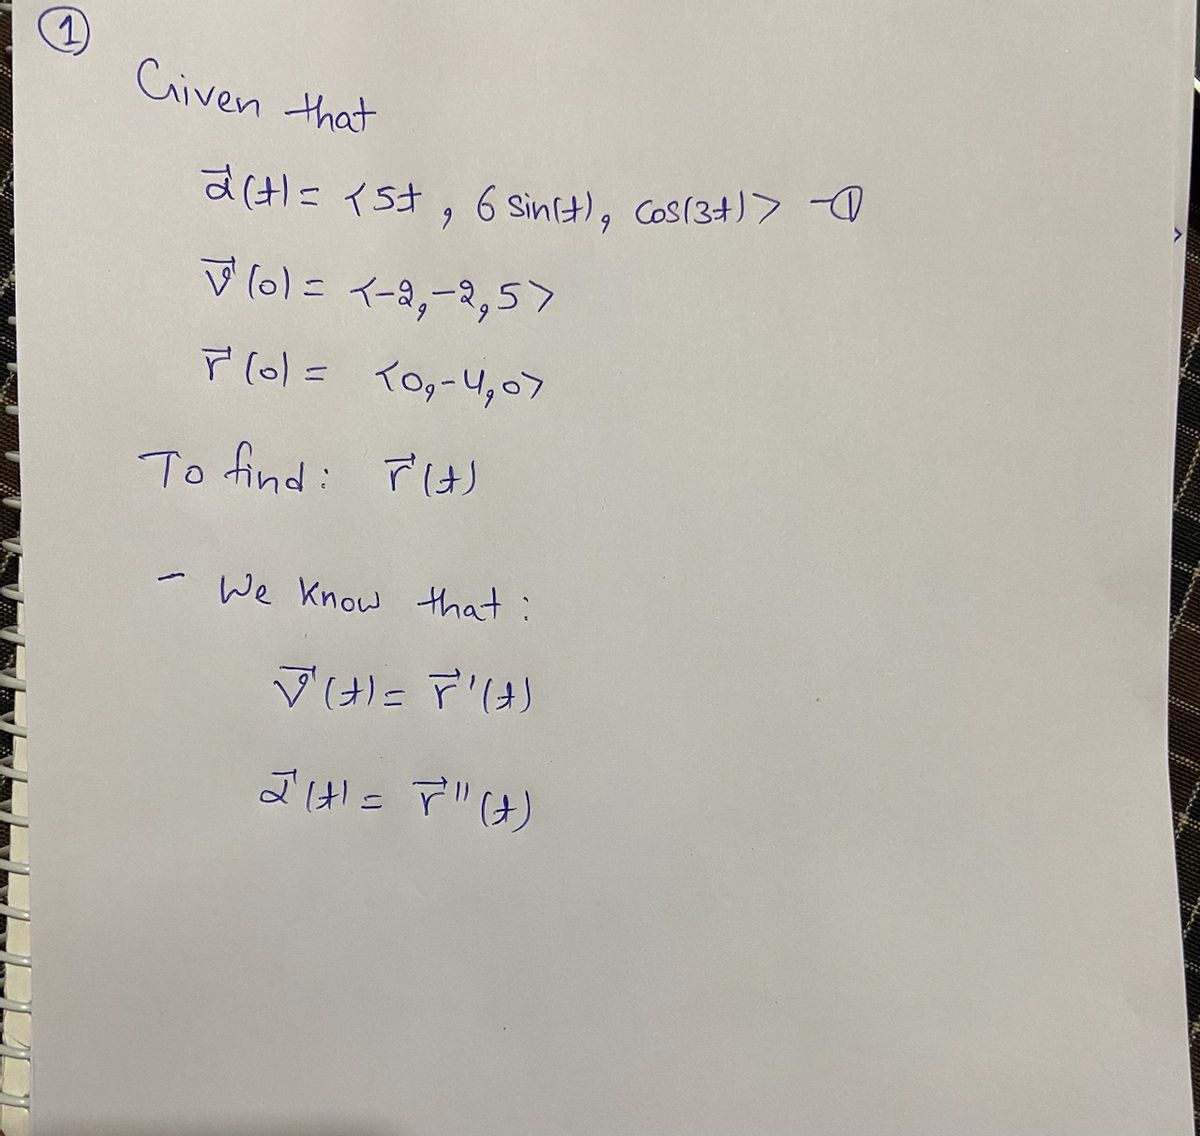 ①
Given that
a⃗(t) = <5t, 6 Sin(t), Cos(3t)> -①
v⃗(0) = <-2, -2, 5>
r⃗(0) = <0, -4, 0>
To find: r⃗(t)
- We Know that:
v⃗(t) = r⃗'(t)
a⃗(t) = r⃗''(t)